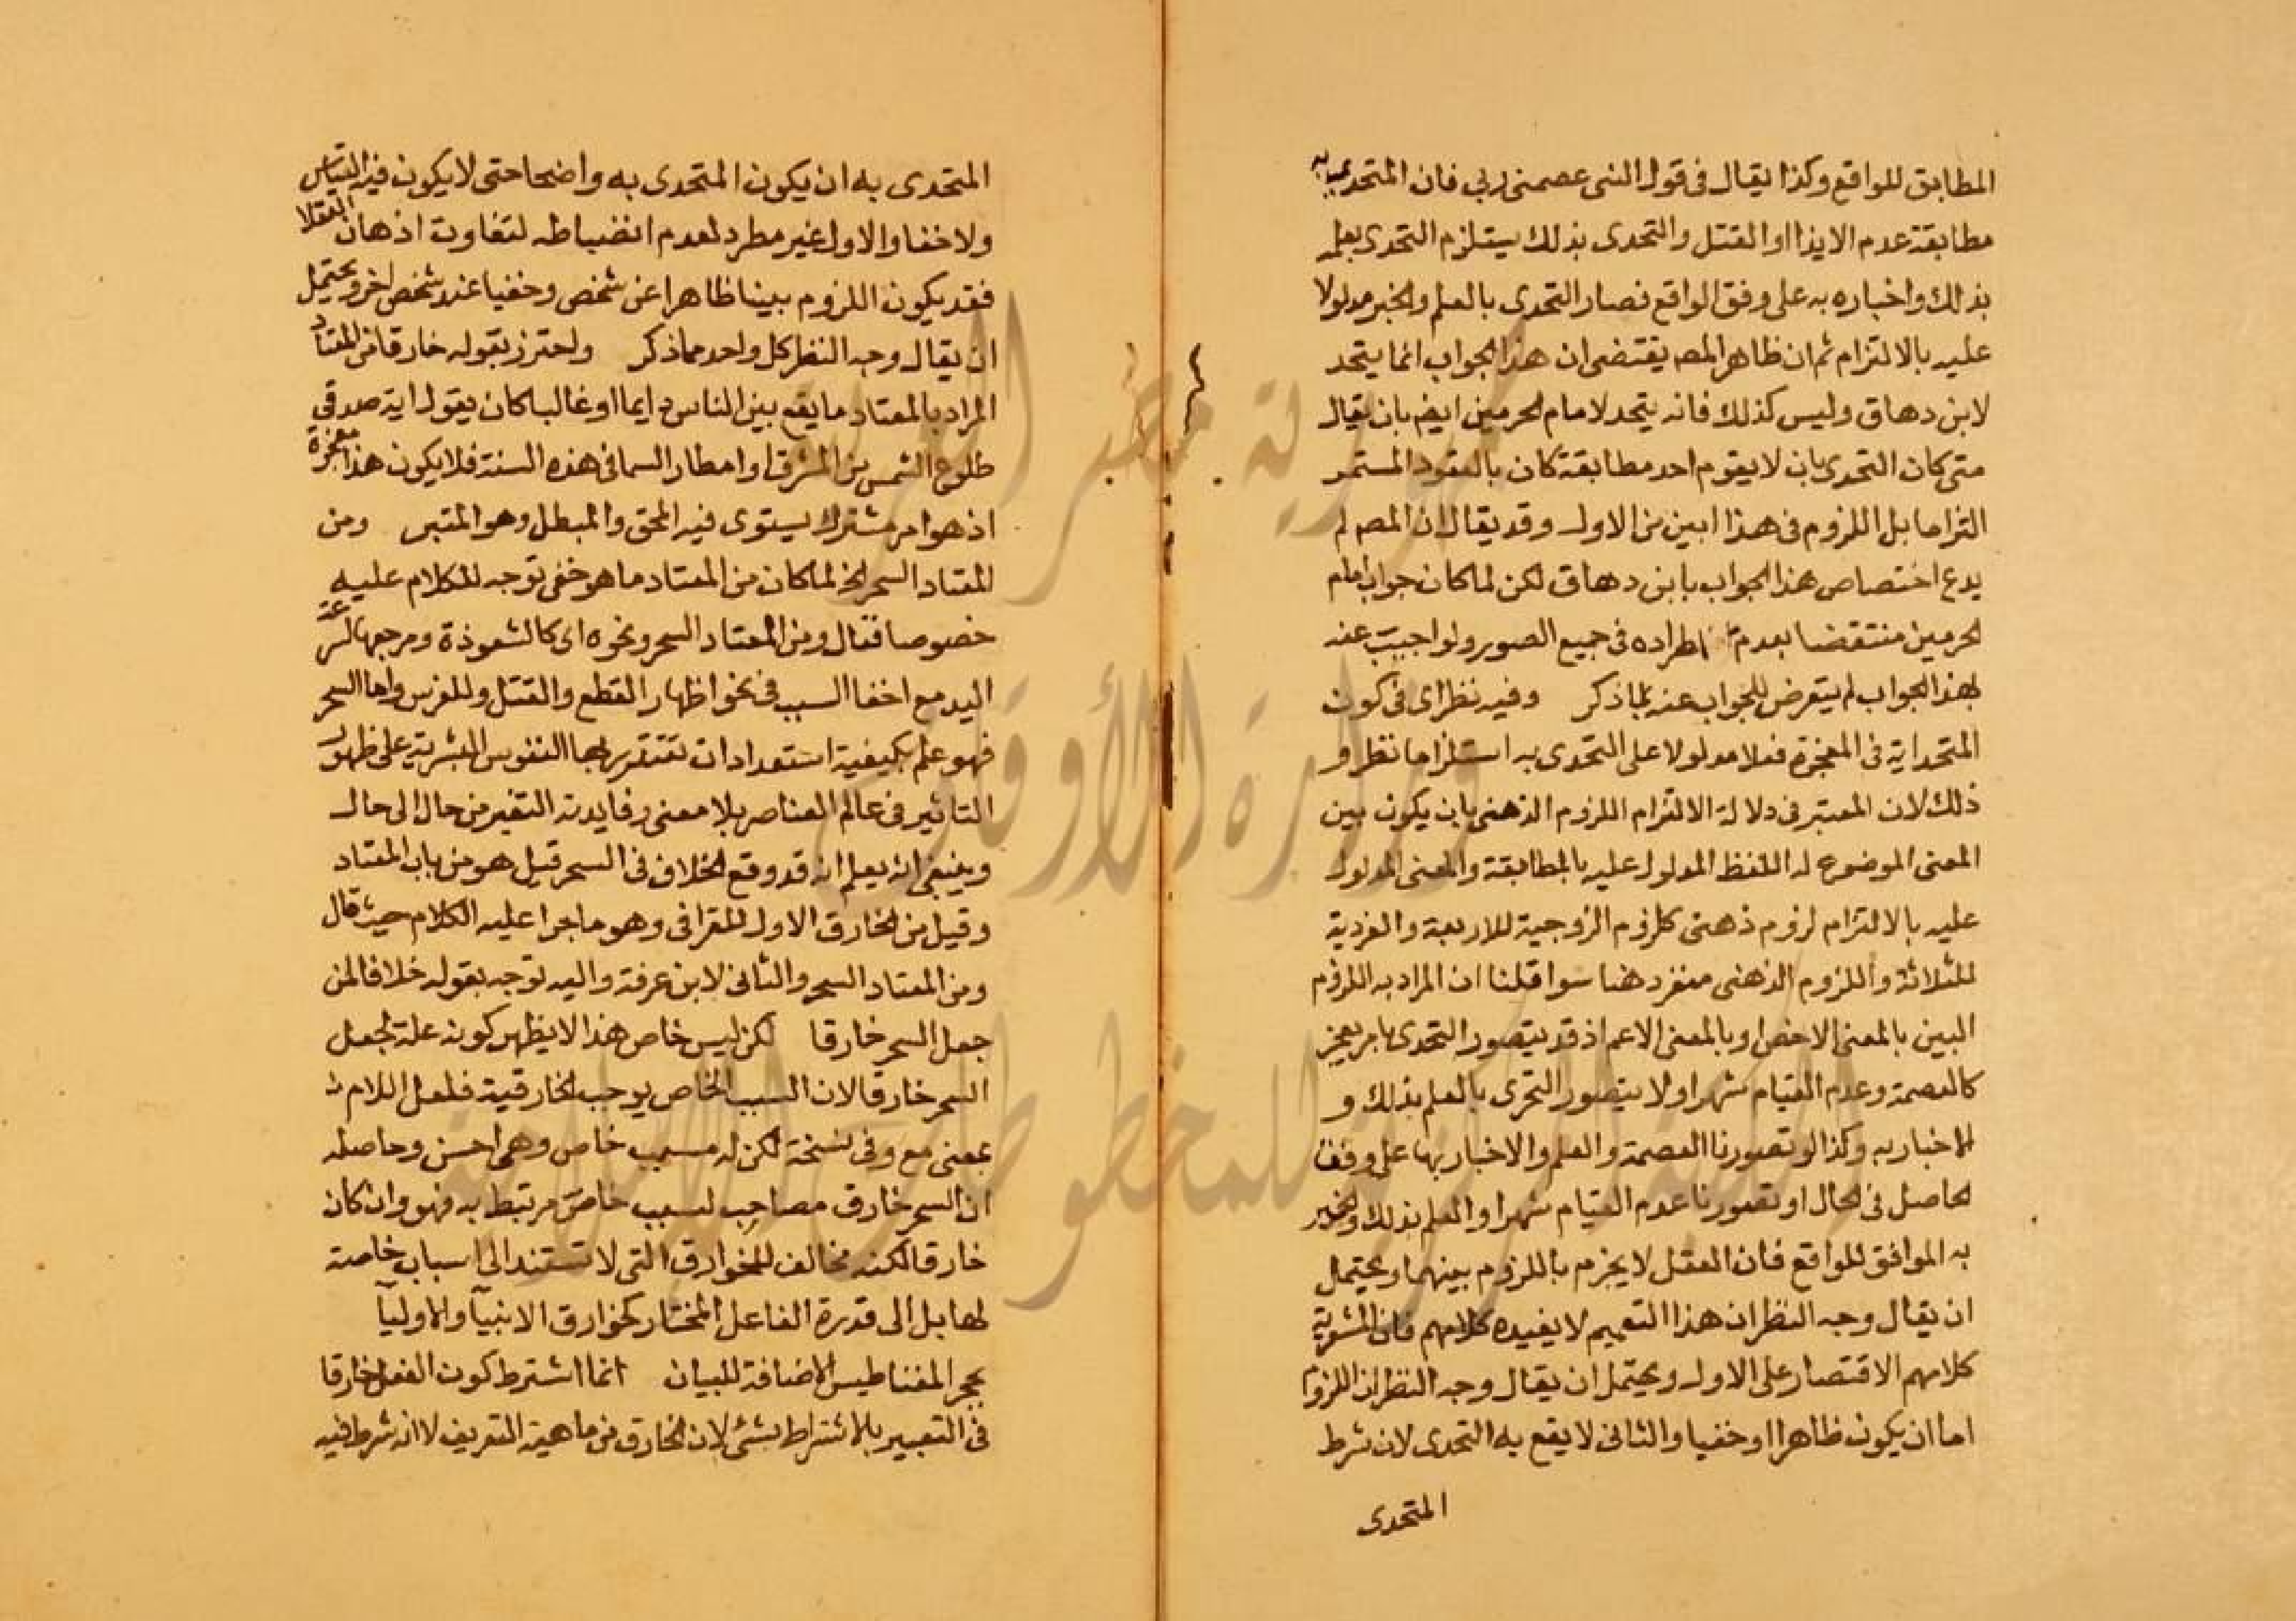 المطابق للواقع وكذا يقال فى قول النبى عصمنى ربى فان المتحدى به
مطابقة عدم الايذا او القتل والتحدى بذلك يستلزم التحدى بعلمه
بذلك واخباره به على وفق الواقع فصار التحدى بالعلم والخبر مدلولا
عليه بالالتزام ثم ان ظاهر المصـ يقتضى ان هذا الجواب انما يتحد
لابن دهاق وليس كذلك فانه يتحد لامام الحرمين ايضـ بان يقال
متى كان التحدى بان لا يقوم احد مطابقة كان بالقعود المستمر
التزاما بل اللزوم فى هذا ابين من الاول وقد يقال ان المصـ لم
يدع اختصاص هذا الجواب بابن دهاق لكن لما كان جواب امام
الحرمين منتقضا بعدم اطراده فى جميع الصور ولو اجيب عنه
بهذا الجواب لم يتعرض للجواب عنه بما ذكر وفيه نظر اى فى كون
المتحدا به فى المعجزة فعلا مدلولا على التحدى به استلزاما نظر و
ذلك لان المعتبر فى دلالة الالتزام اللزوم الذهنى بان يكون بين
المعنى الموضوع له اللفظ المدلول عليه بالمطابقة والمعنى المدلول
عليه بالالتزام لزوم ذهنى كلزوم الزوجية للاربعة والفردية
للثلاثة واللزوم الذهنى منفرد هنا سوا قلنا ان المراد به اللزوم
البين بالمعنى الاخص او بالمعنى الاعم اذ قد يتصور التحدى بامر يعجز
كالعصمة وعدم القيام شهرا ولا يتصور التحدى بالعلم بذلك و
الاخبار به وكذا لو تصورنا العصمة والعلم والاخبار بها على وفق
الحاصل فى الحال او تصورنا عدم القيام شهرا والعلم بذلك والخبر
به الموافق للواقع فان العقل لا يجزم باللزوم بينهما ويحتمل
ان يقال وجه النظر ان هذا التعميم لا يفيده كلامهم فان
كلامهم الاقتصار على الاول ويحتمل ان يقال وجه النظر ان اللزوم
اما ان يكون ظاهرا او خفيا والثانى لا يقع به التحدى لان شرط
المتحدى
المتحدى به ان يكون المتحدى به واضحا حتى لا يكون فيه التباس
ولا خفا والاول غير مطرد لعدم انضباطه لتفاوت اذهان العقلا
فقد يكون اللزوم بينا ظاهرا عن شخص وخفيا عند شخص اخر ويحتمل
ان يقال وجه النظر كل واحد مما ذكر واحترز بقوله خارقا من المعتاد
المراد بالمعتاد ما يقع بين الناس دايما او غالبا كان يقول اية صدقى
طلوع الشمس من المشرق او امطار السما فى هذه السنة فلا يكون هذا معجزة
اذ هو امر مشترك يستوى فيه المحق والمبطل وهو المتبى ومن
المعتاد السحر الخ لما كان من المعتاد ما هو خفى توجه للكلام عليه
خصوصا فقال ومن المعتاد السحر ونحوه اى كالشعوذة ومرجعها لسرعة
اليد مع اخفا السبب فى نحو اظهار القطع والقتل وللغرس واما السحر
فهو علم بكيفية استعدادات تقتدر بها النفوس البشرية على ظهور
التاثير فى عالم العناصر بلا معنى وفايدته التغير من حال الى حال
وينبغى ان يعلم انه قد وقع الخلاف فى السحر قيل هو من باب المعتاد
وقيل من الخارق الاول للقرافى وهو ما جرا عليه الكلام حيث قال
ومن المعتاد السحر والثانى لابن عرفة واليه توجه بقوله خلافا لمن
جعل السحر خارقا لكن ليس خاص هذا لا يظهر كونه علة لجعل
السحر خارقا لان السبب الخاص يوجب الخارقية فلعل اللام
بمعنى مع وفى نسخة لكن له مسبب خاص وهى احسن وحاصله
ان السحر خارق مصاحب لسبب خاص مرتبط به فهو وان كان
خارقا لكنه مخالف للخوارق التى لا تستند الى اسباب خاصة
لها بل الى قدرة الفاعل المختار كخوارق الانبيآ والاوليآ
بحجر المغناطيس الاضافة للبيان انما اشترط كون الفعل خارقا
فى التعبير بالاشتراط بشئ لان الخارق من ماهية التعريف لا انه شرط فيه
جمهورية مصر العربية
وزارة الأوقاف
المكتبة المركزية للمخطوطات الإسلامية